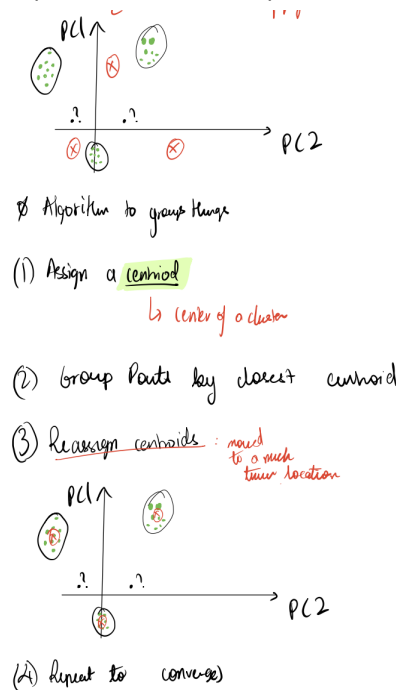 PC1
x
.? .?
x x
PC2
Algorithm to group things
(1) Assign a centriod
↳ center of a cluster
(2) Group Points by closest centroid
(3) Reassign centroids : moved
to a much
location
PC1
x
x
.? .?
PC2
x
(4) Repeat to converge)